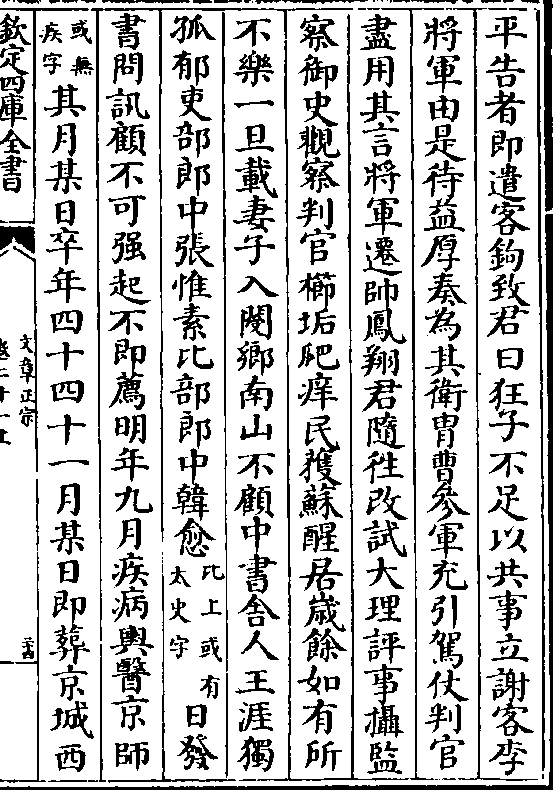 平告者即遣客鉤致君曰狂子不足以共事立謝客李
將軍由是待益厚奏為其衛胄曹參軍充引駕仗判官
盡用其言將軍遷帥鳳翔君隨往改試大理評事攝監
察御史觀察判官櫛垢爬痒民獲蘇醒居嵗餘如有所
不樂一旦載妻子入閿鄉南山不顧中書舍人王涯獨
孤郁吏部郎中張惟素比部郎中韓愈比上或有太史字日發
書問訊顧不可强起不即薦明年九月疾病輿醫京師
或無疾字其月某日卒年四十四十一月某日即葬京城西
欽定四庫全書
文章正宗